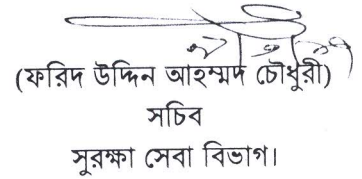 (ফরিদ উদ্দিন আহম্মদ চৌধুরী)
সচিব
সুরক্ষা সেবা বিভাগ।